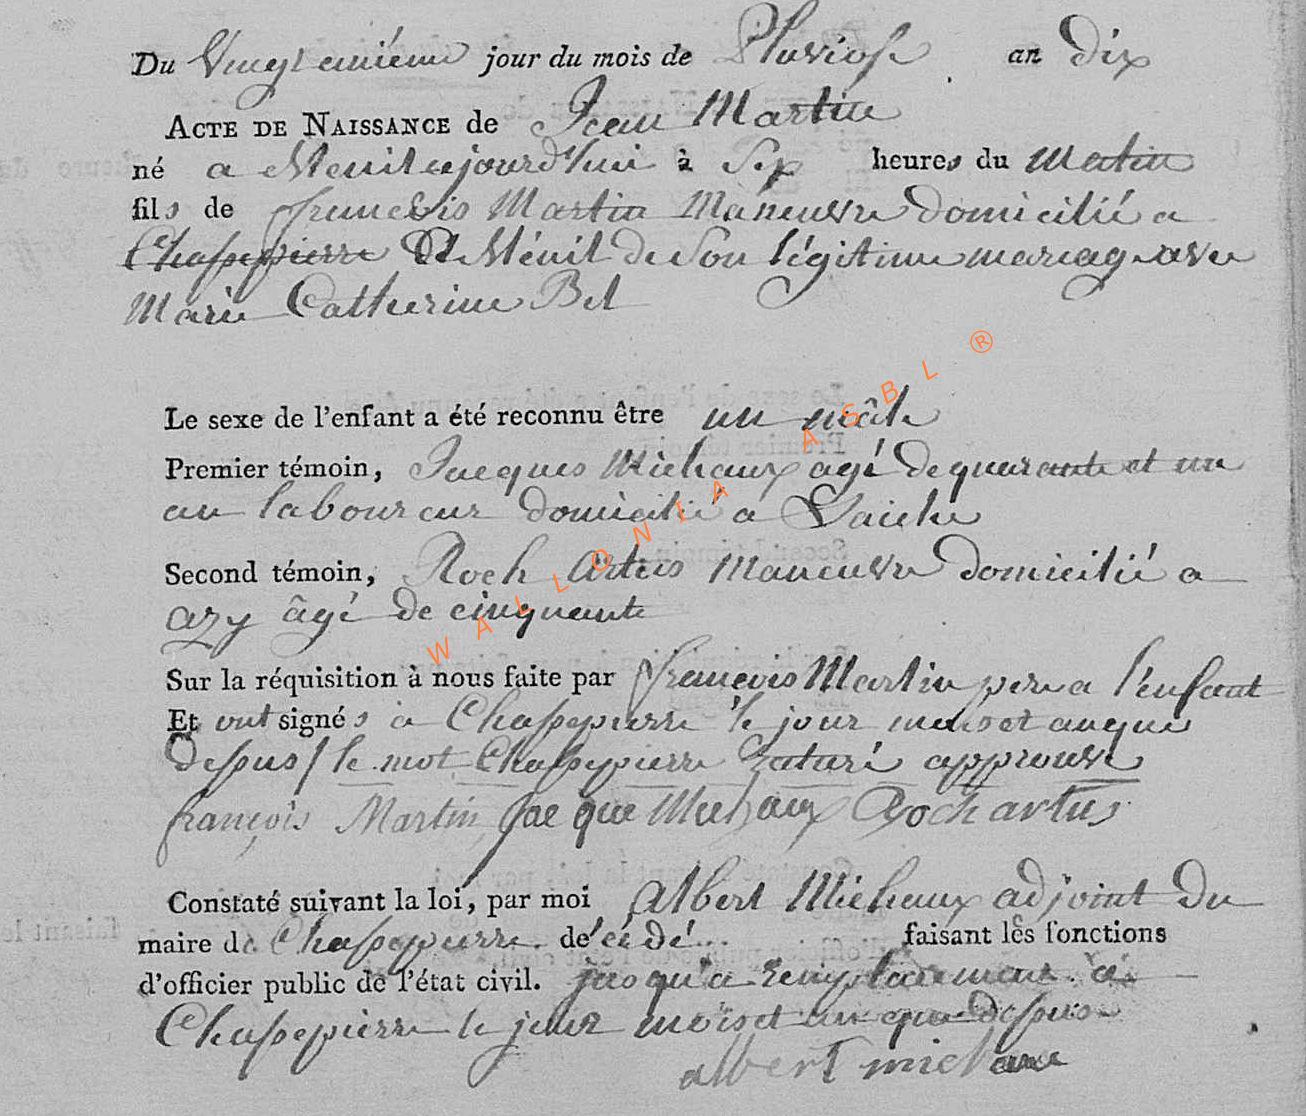 Du Vingt unième jour du mois de Pluviose an dix
ACTE DE NAISSANCE de Jean Martin
né a Menil aujourd'hui à Six heures du matin
fils de françois Martin Manœuvre domicilié a
Chassepierre Et Ménil de Son légitime mariage avec
Marie Catherine Bel
Le sexe de l'enfant a été reconnu être un mâle
Premier témoin, Jacques Michaux agé de quarante et un
an laboureur domicilié a Laiche
Second témoin, Roch Artus Manœuvre domicilié a
azy âgé de cinquante
Sur la réquisition à nous faite par françois Martin pere a l'enfant
Et ont signés à Chassepierre le jour mois et an que
dessus / le mot Chassepierre raturé approuvé
françois Martin Jacque Michaux Roch artus
Constaté suivant la loi, par moi Albert Michaux adjoint du
maire de Chassepierre décédé faisant les fonctions
d'officier public de l'état civil. jusqu'a remplacement a
Chassepierre le jour mois et an que dessus
albert michaux
WALLONIA ASBL ®